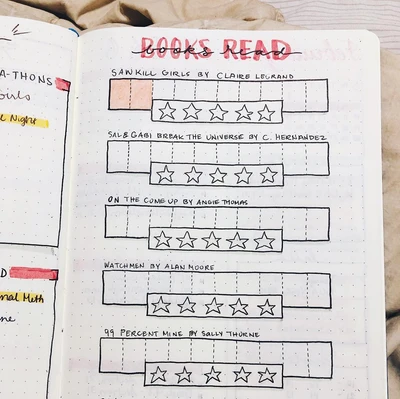 A-THONS
Girls
Night
BOOKS READ
books read
SAWKILL GIRLS BY CLAIRE LEGRAND
SAL & GABI BREAK THE UNIVERSE BY C. HERNANDEZ
ON THE COME UP BY ANGIE THOMAS
WATCHMEN BY ALAN MOORE
99 PERCENT MINE BY SALLY THORNE